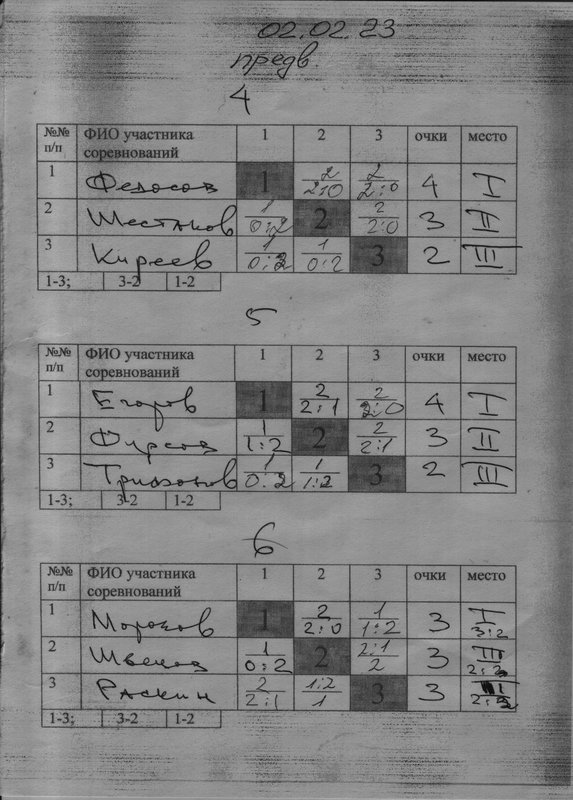 02.02.23
предв.
4
№№ п/п ФИО участника соревнований 1 2 3 очки место
1 Федосов 1 2 2:0 2 2:0 4 I
2 Шестаков 1 0:2 2 2 2:0 3 II
3 Киреев 1 0:2 1 0:2 3 2 III
1-3; 3-2 1-2
5
№№ п/п ФИО участника соревнований 1 2 3 очки место
1 Егоров 1 2 2:1 2 2:0 4 I
2 Фирсов 1 1:2 2 2 2:1 3 II
3 Трифонов 1 0:2 1 1:2 3 2 III
1-3; 3-2 1-2
6
№№ п/п ФИО участника соревнований 1 2 3 очки место
1 Морохов 1 2 2:0 1 1:2 3 I 3:2
2 1 0:2 2 2:1 2 3 III
3 Раскин 2 2:1 1:2 1 3 3
1-3; 3-2 1-2